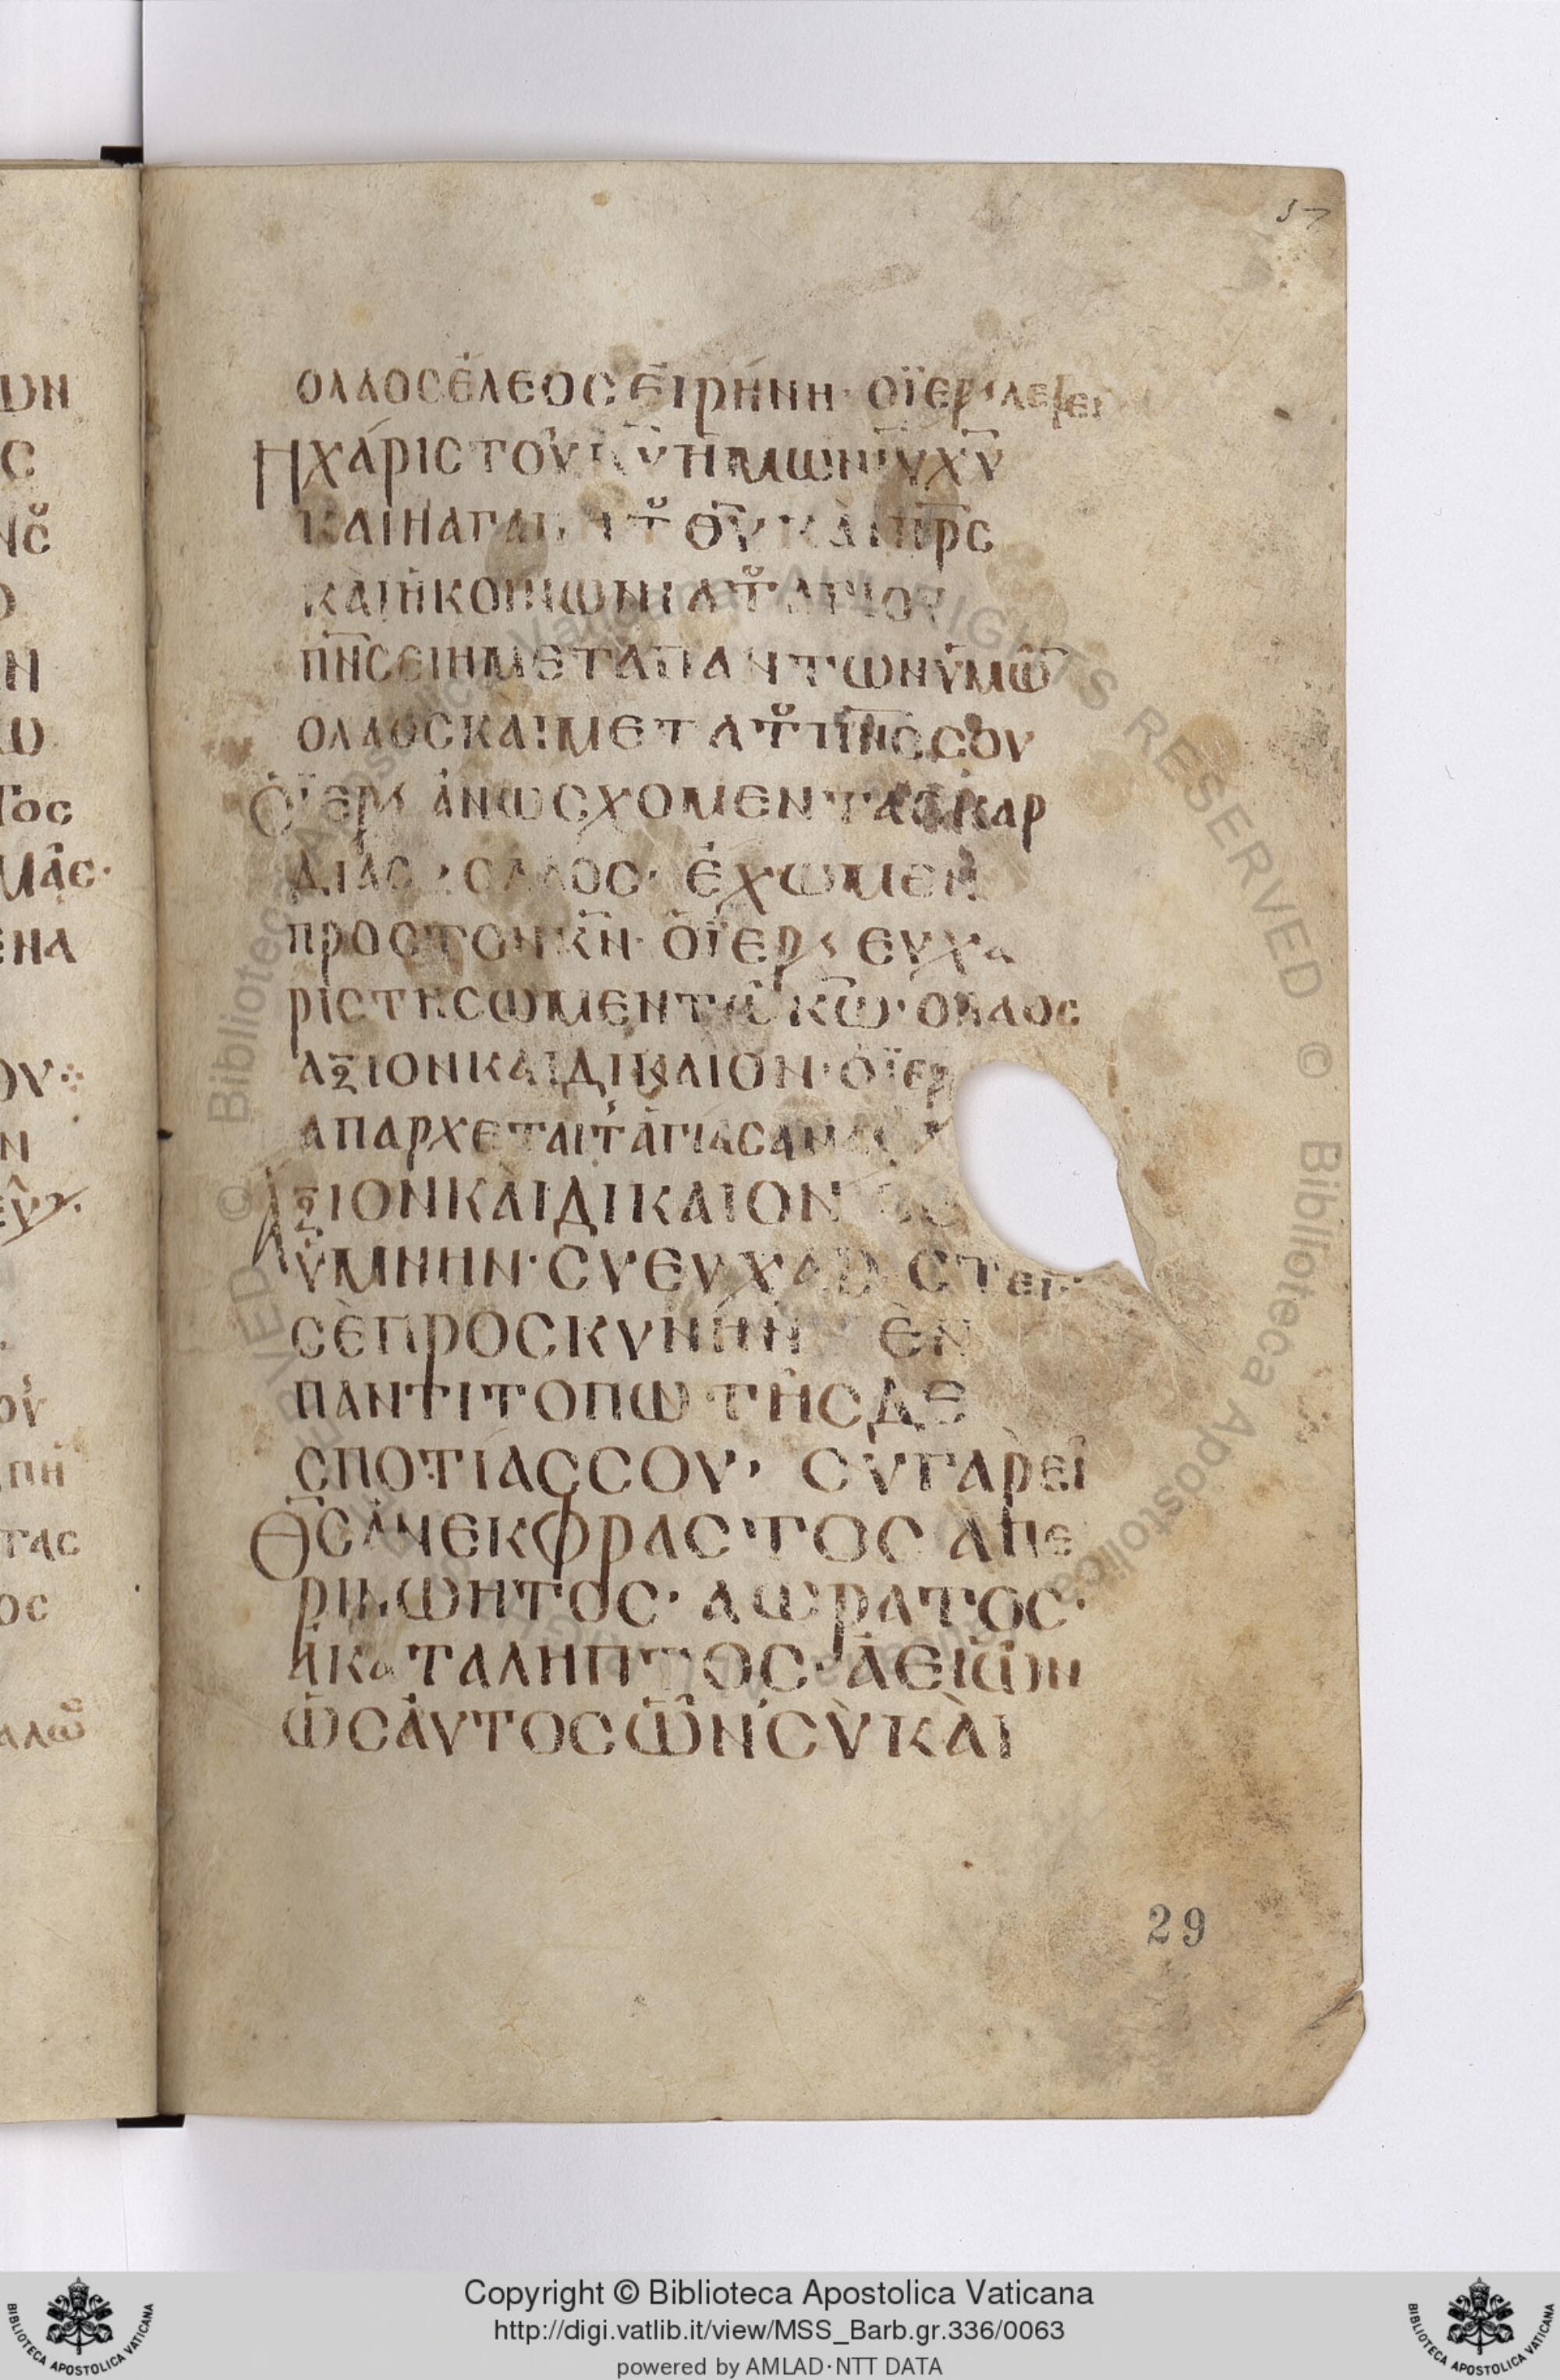 57
ολαοσέλεος εἰρήνη· οϊερ λεξει
Ηχάριστοῦ κῡ ἡμων ῑῡ χῡ
καιηαγαπη τȣ θῡ κὰι πρ̅ς
κὰιἡκοινωνια τȣ αγιου
πν̅ς ειημεταπαντωνὑμῶ̅
ολαοσκαιμετατȣ πν̅ς σου
Ὁϊερ ἄνωσχομεντασκαρ
διας ολαος· ἐχωμεν
προστονκ̅ν· ὁϊερ ευχα
ριστησωμεντῶ κ̅ω· ολαος
αξιονκαιδικαιον· ὁϊερ
απαρχεταιτ ἁγιας αν
Αξιονκὰιδικαιον σε
ὑμνην· συευχαρ στειν
σὲπροσκυνῆν ἐν
παντιτοπω τῆσδε
σποτίασσου· συγαρεῖ
Θ̅ς ἀνεκφραστος απε
ρινωητος· αωρατος·
ἀκαταληπτος· ἀειὼν
ὡσἀυτοσὢν· σὺκὰι
29
Copyright © Biblioteca Apostolica Vaticana
http://digi.vatlib.it/view/MSS_Barb.gr.336/0063
powered by AMLAD·NTT DATA